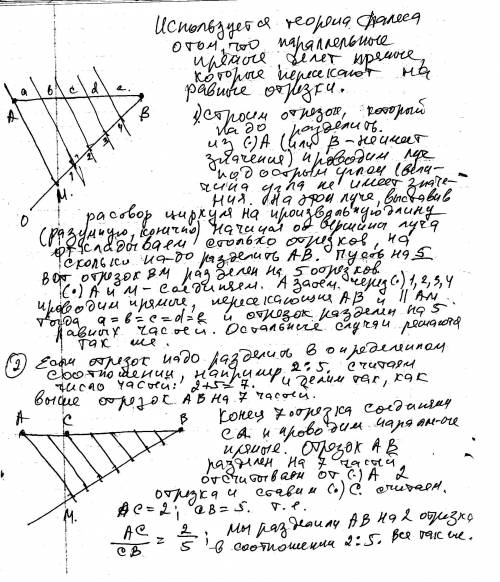 Используется теорема Фалеса
о том, что параллельные
прямые делят прямые,
которые пересекают на
равные отрезки.
a b c d e
A B
1 2 3 4
M
O
1) Строим отрезок, который
надо разделить.
из (·) A (или B - не имеет
значение) проводим луч
под острым углом (вели-
чина угла не имеет значе-
ния. на этом луче, выставив
раствор циркуля на произвольную длину
(разумную, конечно) начиная от вершины луча
откладываем столько отрезков, на
сколько надо разделить AB. Пусть на 5
Вот отрезок BM разделен на 5 отрезков
(·) A и M - соединяем. А затем через (·) 1, 2, 3, 4
проводим прямые, пересекающие AB и || AM.
Тогда a = b = c = d = e и отрезок разделен на 5
равных частей. Остальные случаи решаются
так же.
2 Если отрезок надо разделить в определенном
соотношении, например 2:5. считаем
число частей: 2+5=7. и делим так, как
выше отрезок AB на 7 частей.
A C B
M
Конец 7 отрезка соединяем
с A и проводим паралл-ые
прямые. Отрезок AB
разделен на 7 частей
отсчитываем от (·) A 2
отрезка и ставим (·) C. считаем.
AC = 2; CB = 5. т.е.
AC/CB = 2/5; мы разделили AB на 2 отрезка
в соотношении 2:5. Все так же.